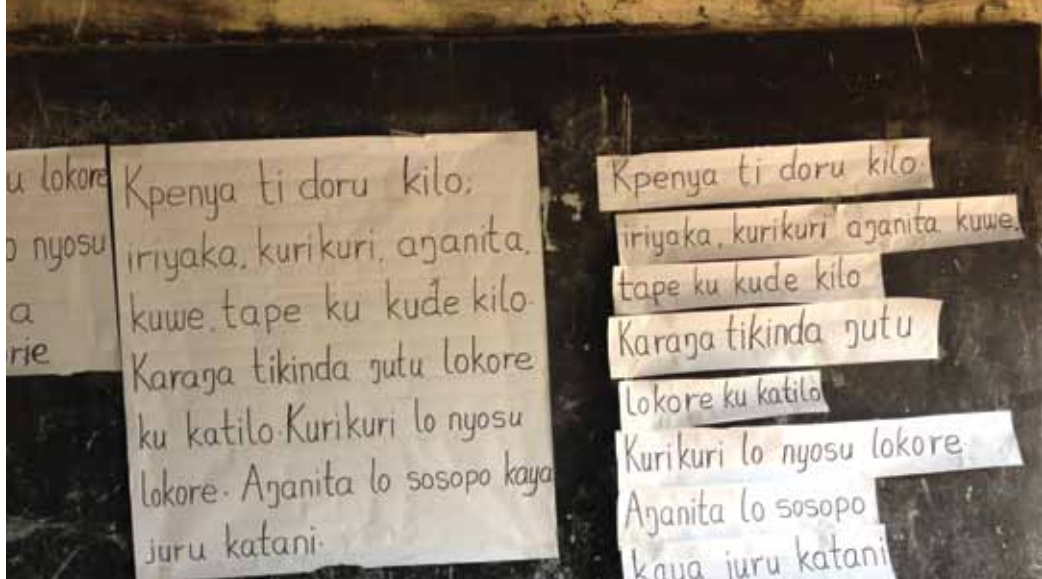 u lokore
o nyosu
a
rie
Kpenya ti doru kilo:
iriyaka, kurikuri, aŋanita,
kuwe, tape ku kuɗe kilo.
Karaŋa tikinda ŋutu lokore
ku katilo. Kurikuri lo nyosu
lokore. Aŋanita lo sosopo kaya
juru katani.
Kpenya ti doru kilo.
iriyaka, kurikuri aŋanita kuwe,
tape ku kuɗe kilo
Karaŋa tikinda ŋutu
lokore ku katilo
Kurikuri lo nyosu lokore.
Aŋanita lo sosopo
kaya juru katani